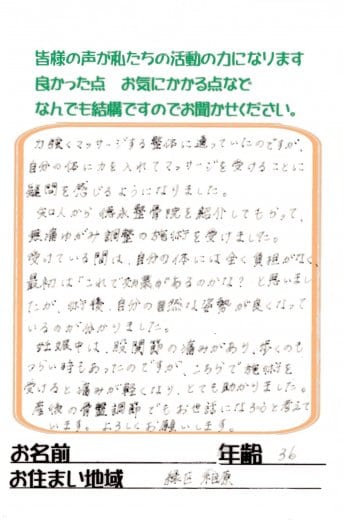 皆様の声が私たちの活動の力になります
良かった点　お気にかかる点など
なんでも結構ですのでお聞かせください。
力強くマッサージする整体に通っていたのですが、
自分の体に力を入れてマッサージを受けることに
疑問を感じるようになりました。
知人から 整骨院を紹介してもらって、
無痛ゆがみ調整の施術を受けました。
受けている間は、自分の体には全く負担がなく、
最初は「これで効果があるのかな？と思いまし
たが、術後、自分の自然な姿勢が良くなって
いるのが分かりました。
妊娠中は、股関節の痛みがあり、歩くのも
つらい時もあったのですが、こちらで施術を
受けると痛みが軽くなり、とても助かりました。
産後の骨盤調節でもお世話になろうと考えて
います。よろしくお願いします。
お名前
年齢 36
お住まい地域 緑区 相原